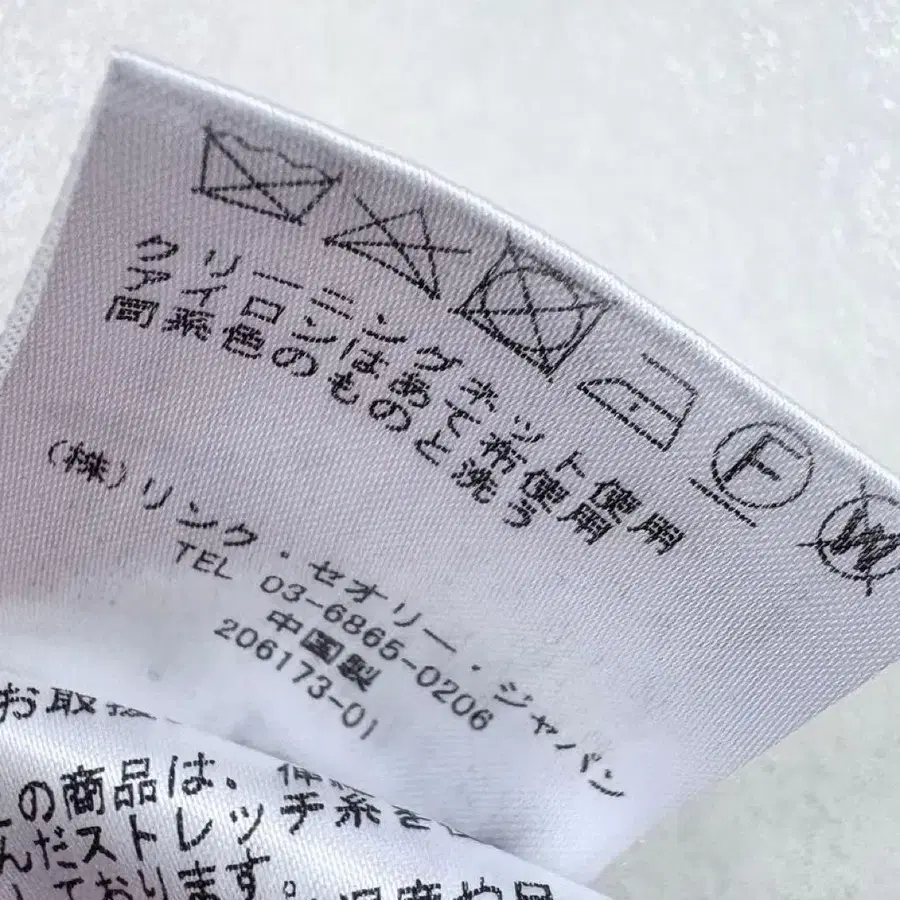 F
W
クリーニングネット使用
アイロンはあて布使用
同系色のものと洗う
(株)リンク・セオリー・ジャパン
TEL 03-6865-0206
中国製
206173-01
お取扱
この商品は、伸縮糸を
んだストレッチ
しております。